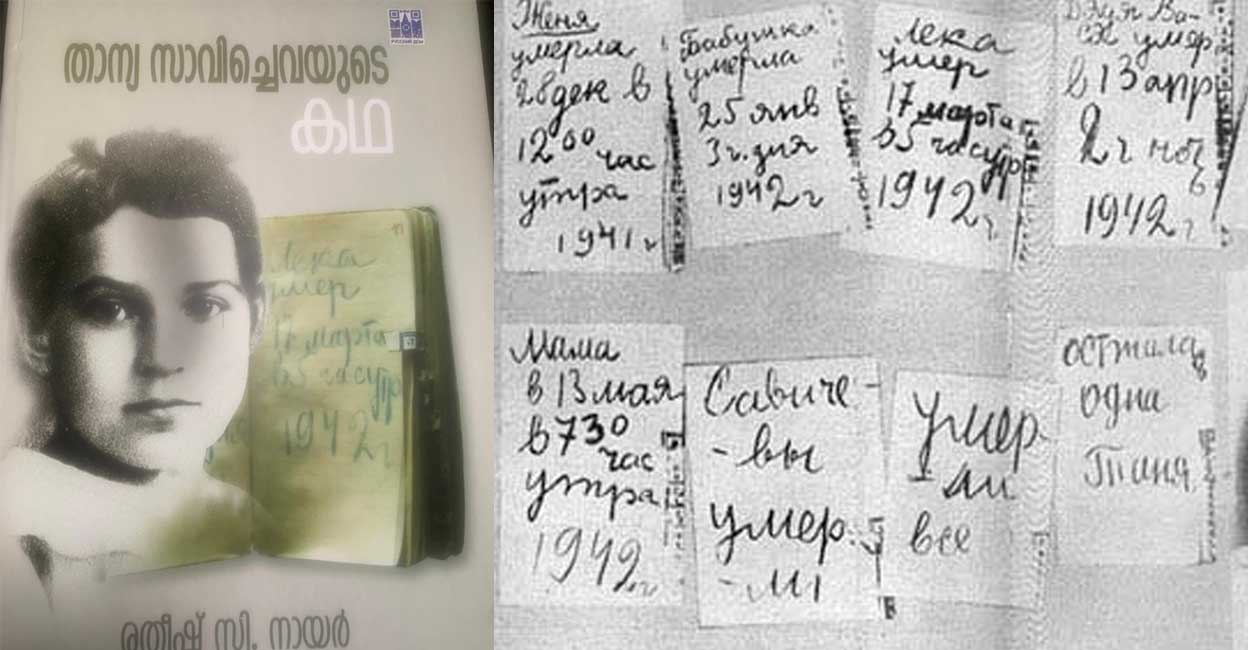 РУССКИЙ ДОМ
താന്യ സാവിച്ചെവയുടെ
കഥ
Лека
умер
17 марта
в 5 час утр
1942 г
രതീഷ് സി. നായർ
Женя
умерла
28 дек в
12 00 час
утра
1941 г
Бабушка
умерла
25 янв
3 ч. дня
1942 г
Лека
умер
17 марта
в 5 час утр
1942 г.
Дядя Ва-
ся умер
в 13 апр
2 ч ноч
1942 г
Мама
в 13 мая
в 7 30
час
утра
1942 г
Савиче-
-вы
умер.
-ли
умер-
-ли
все
осталась
одна
Таня